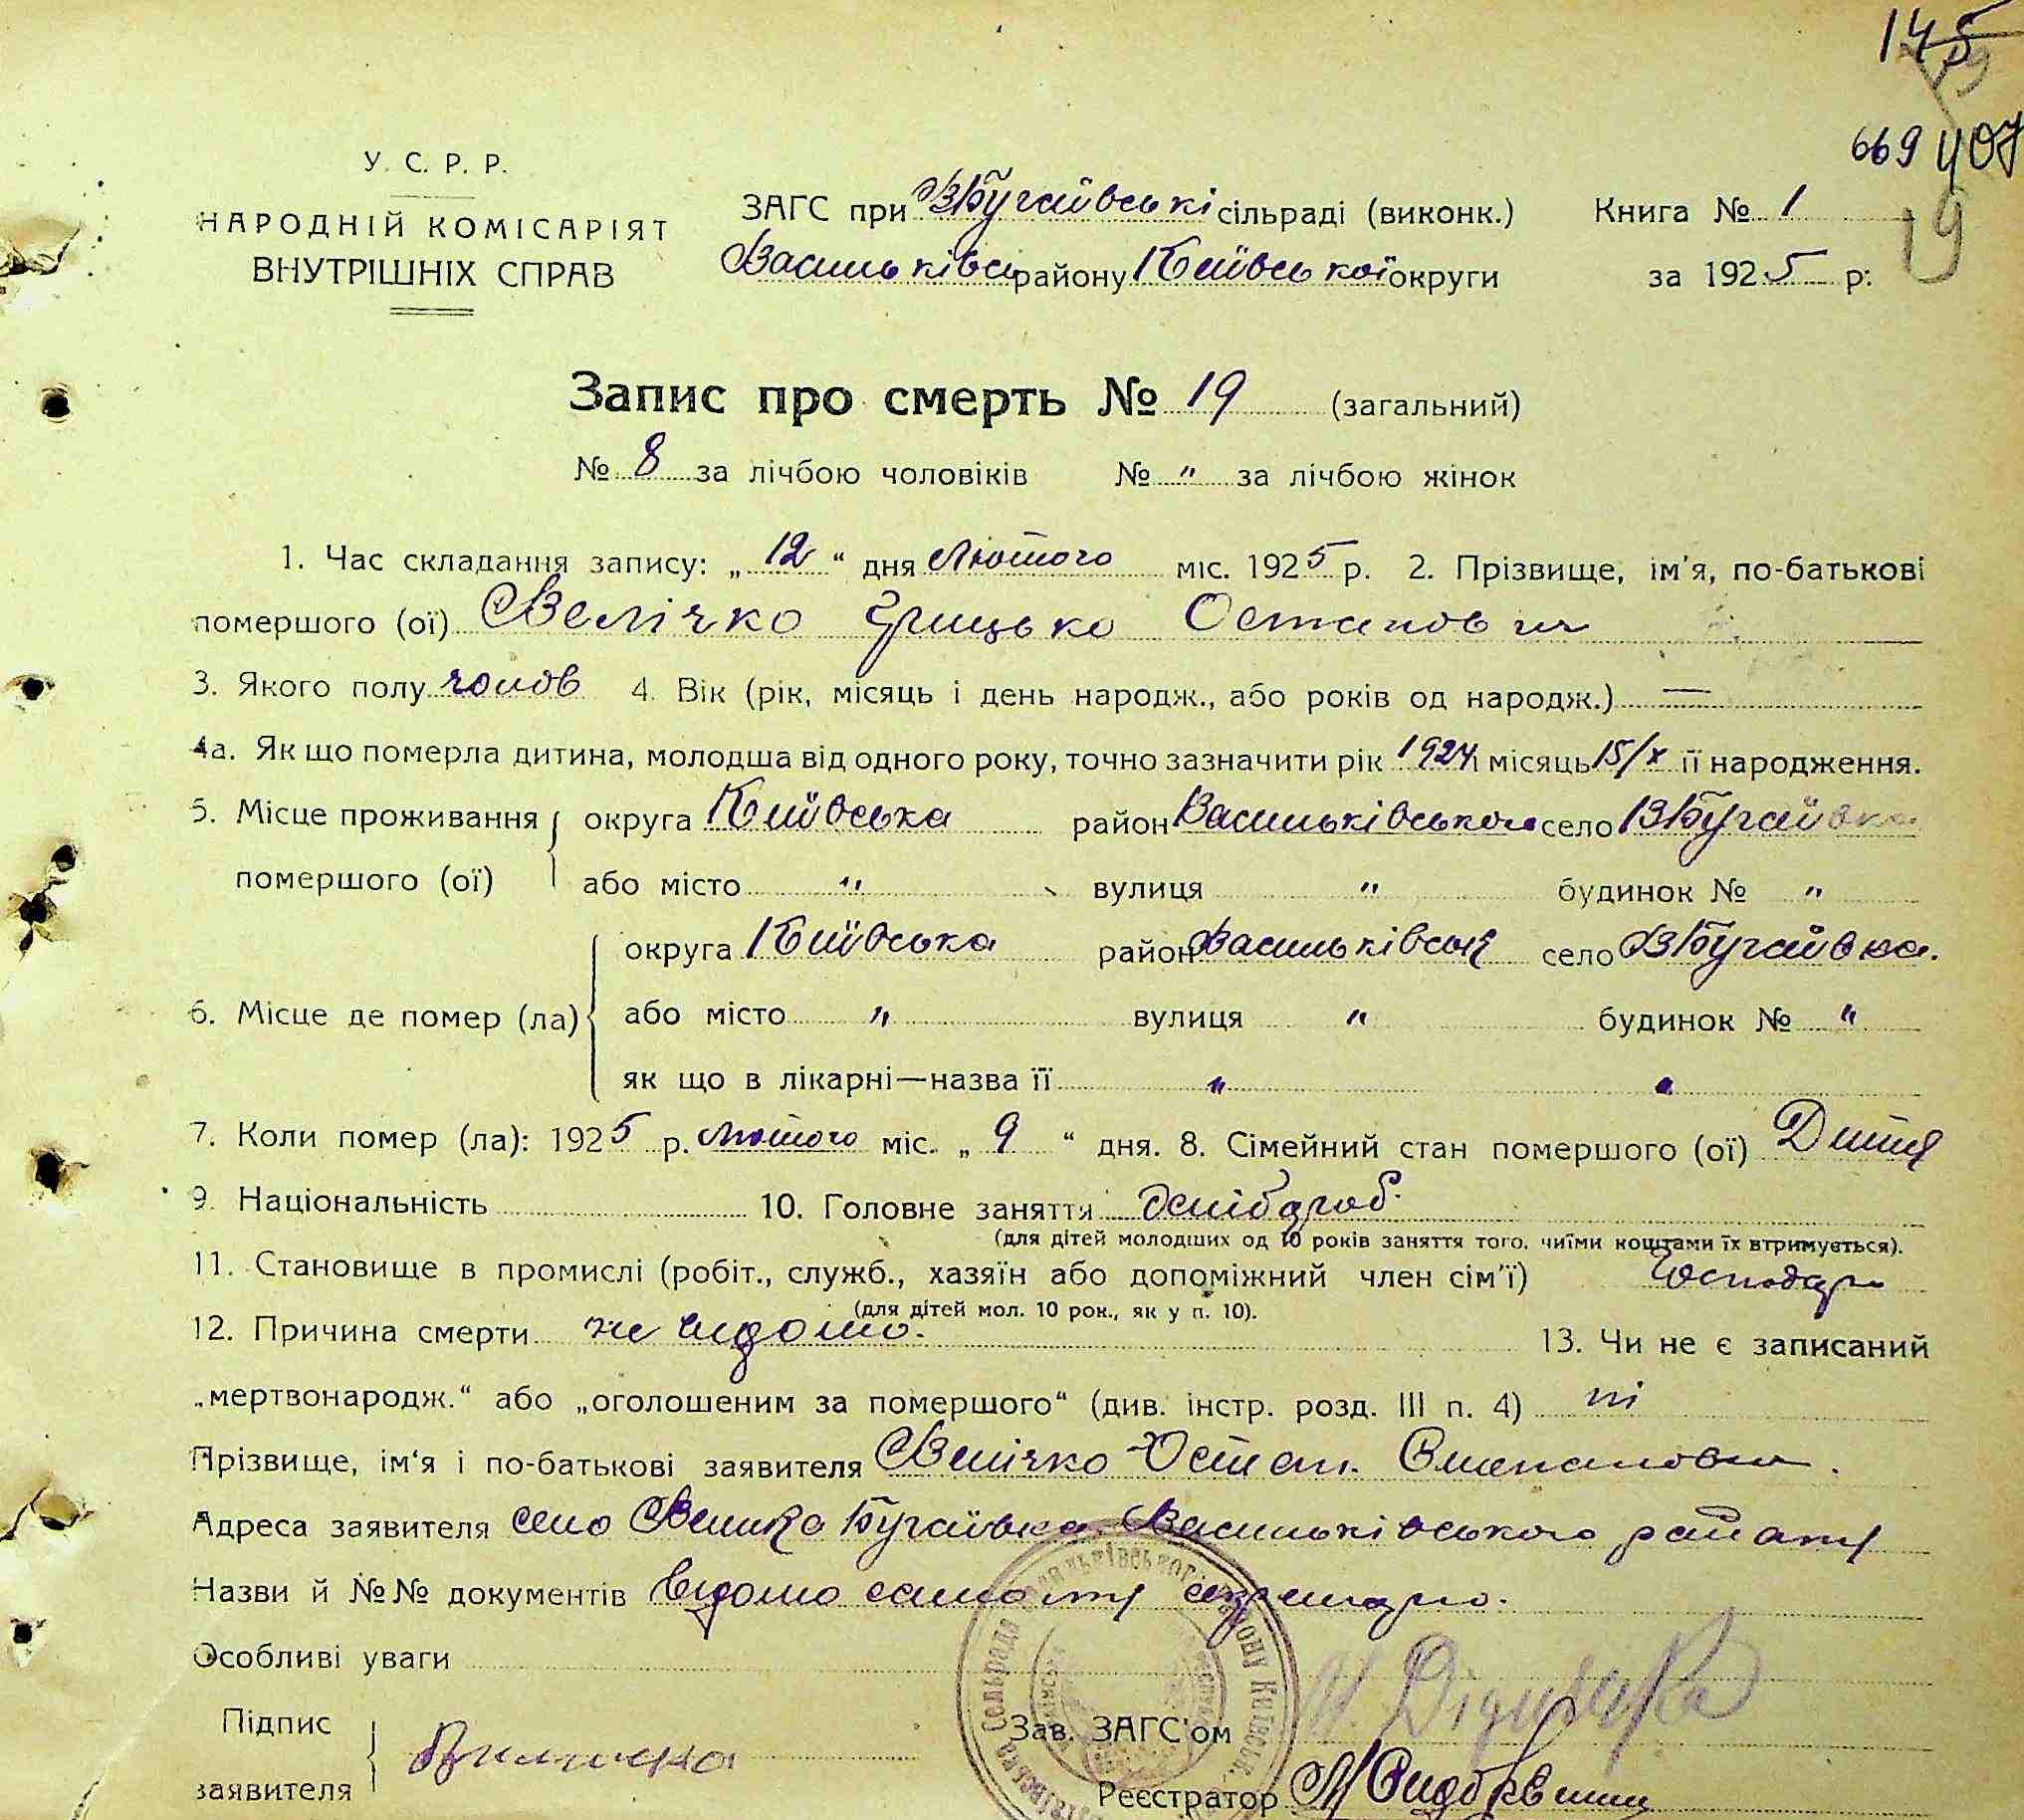 145
669 407
19
У. С. Р. Р.
НАРОДНІЙ КОМІСАРІЯТ
ВНУТРІШНІХ СПРАВ
ЗАГС при ВБугаївські сільраді (виконк.)
Васильківсь району Київської округи
Книга № 1
за 1925 р:
Запис про смерть № 19 (загальний)
№ 8 за лічбою чоловіків № " за лічбою жінок
1. Час складання запису: „12“ дня Лютого міс. 1925 р. 2. Прізвище, ім'я, по-батькові
помершого (ої) Велічко Грицько Остапович
3. Якого полу чолов 4. Вік (рік, місяць і день народж., або років од народж.) —
4а. Як що померла дитина, молодша від одного року, точно зазначити рік 1924 і місяць 15/х її народження.
5. Місце проживання помершого (ої) округа Київська район Васильківського село ВБугаївка
або місто " вулиця " будинок № "
6. Місце де помер (ла) округа Київська район Васильківськ село ВБугаївка.
або місто " вулиця " будинок № "
як що в лікарні—назва її " "
7. Коли помер (ла): 1925 р. Лютого міс. „9“ дня. 8. Сімейний стан помершого (ої) Дитя
9. Національність 10. Головне заняття
(для дітей молодших од 10 років заняття того, чиїми коштами їх втримується).
11. Становище в промислі (робіт., служб., хазяїн або допоміжний член сім'ї) Господар
(для дітей мол. 10 рок., як у п. 10).
12. Причина смерти не відомо. 13. Чи не є записаний
„мертвонародж.“ або „оголошеним за помершого“ (див. інстр. розд. III п. 4) ні
Прізвище, ім'я і по-батькові заявителя Велічко Остап Степанович.
Адреса заявителя село Велика Бугаївка Васильківського району
Назви й №№ документів Відомо самому секретарю.
Особливі уваги
Підпис заявителя Величко
Зав. ЗАГС'ом
Реєстратор